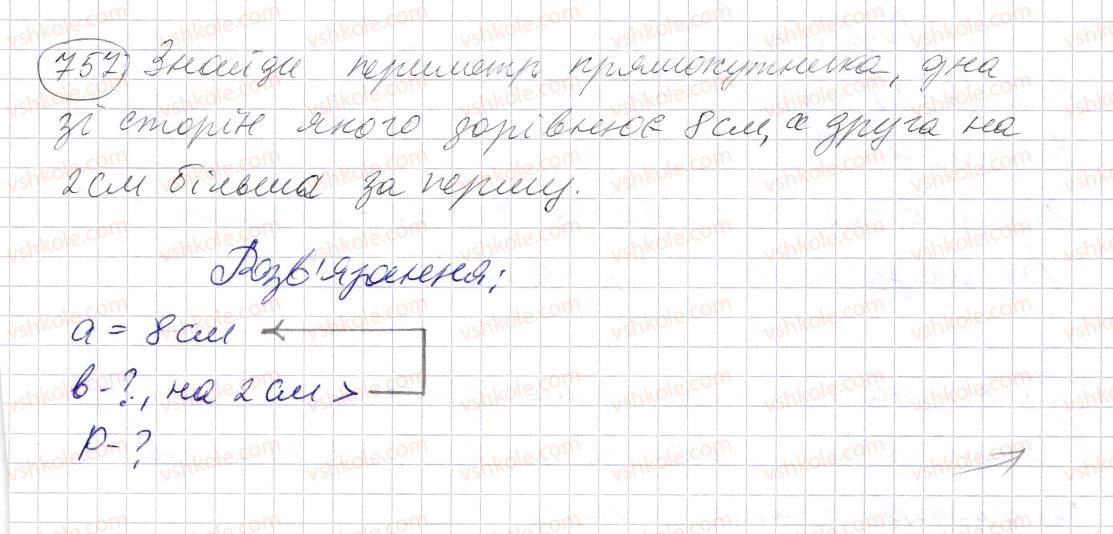 757) Знайди периметр прямокутника, дна
зі сторін якого дорівнює 8 см, а друга на
2 см більша за першу.
Розв'язання:
a = 8 см
в - ?, на 2 см >
P - ?